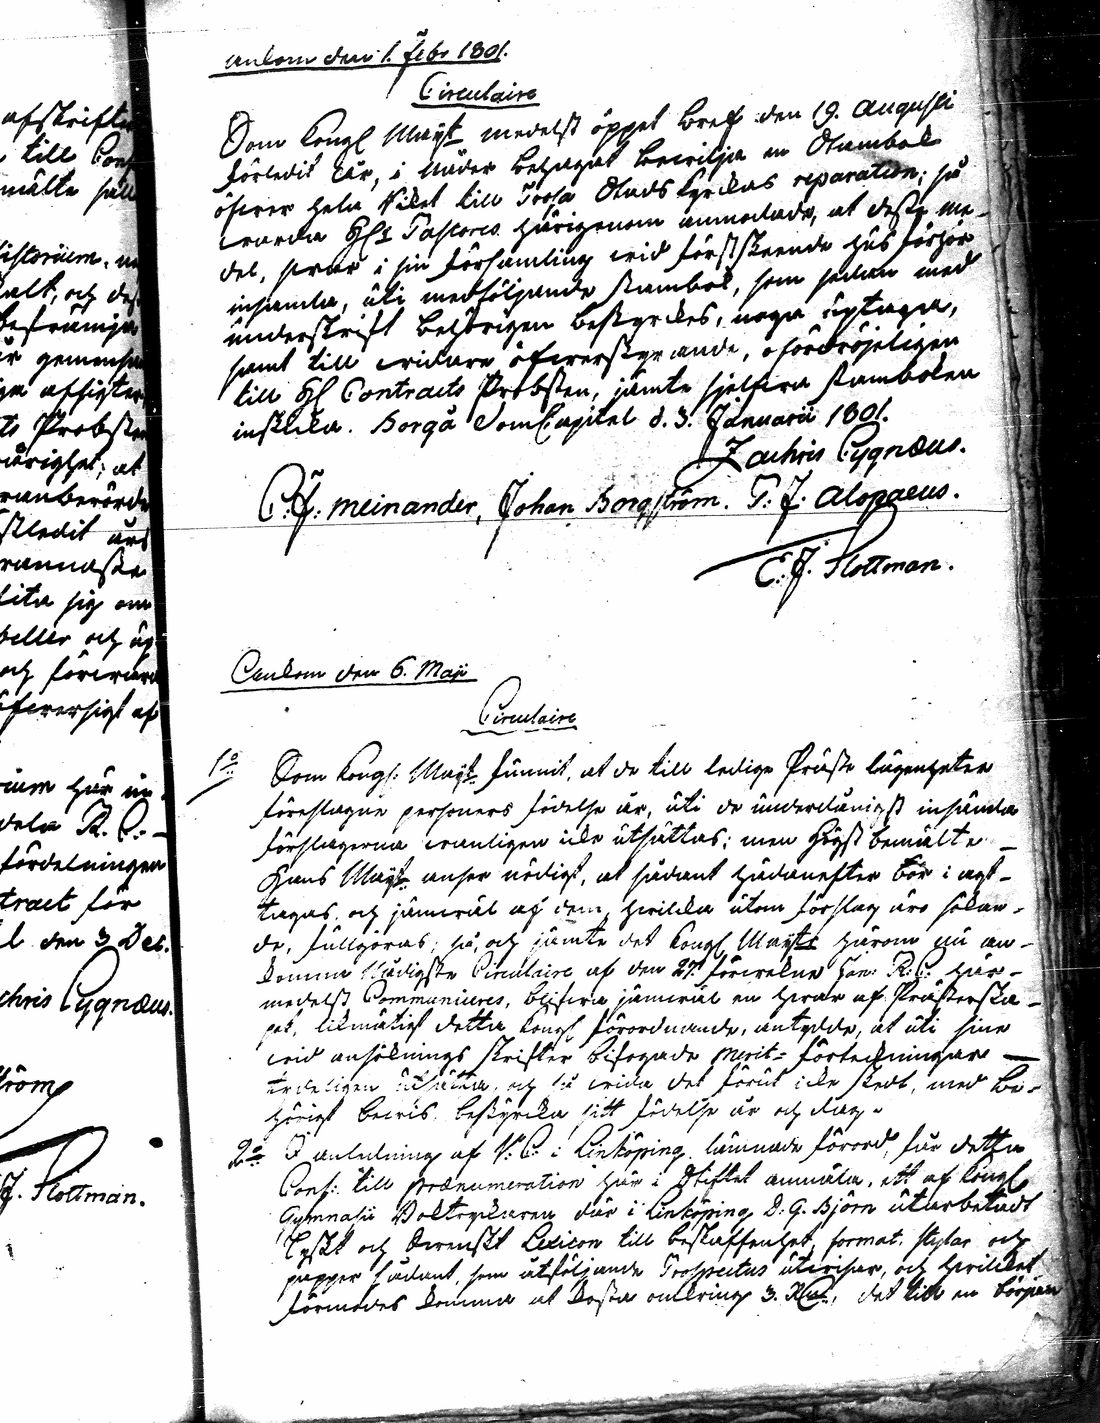 afskrifter
till Cons
mälte
istorium
alt, och des
befrämja
gemensa
ga afsigter
ts Probster
urighet; at
ranberörde
skledit års
rannaste
lita sig om
seller och
och förevar
öfversigt af
rium här
dela R. C. –
fördelningen
tract för
den 3 Dec.
chris Cygnæus.
röm
J. Slottman.
ankom den 1. Febr 1801.
Circulaire
Som Kongl Mayt medelst öppet bref den 19. Augusti
förledit år, i Nåder behagat bevilja en Stambok
öfver hela Riket till Trosa Stads Kyrkas reparation; så
varda HH Pastores härigenom anmodade, at desse me-
del, hvar i sin församling vid förstskeende hus förhör
insamla, uti medföljande Stambok, som sedan med
underskrift behörigen bestyrkes, noga uptaga,
samt till vidare öfverstyrande, ofördröjeligen
till H Contracts Probsten, jämte sjelfva Stamboken
inskicka. Borgå DomCapitel d. 3. Januarii 1801.
Zachris Cygnæus.
C. J. Meinander, Johan Borgström. T. J. Alopaeus.
C. J. Slottman.
Ankom den 6. Maji
Circulaire
1o Som Kongl. Mayt funnit, at de till ledige Präste lägenheter
föreslagne personers födelse år, uti de underdånigst insända
förslagerna vanligen icke utsättas; men Högst bemälte
Hans Mayt anser nödigt, at sådant hädanefter bör i agt-
tagas, och jämväl af dem, hvilka utom förslag äro sökan-
de, fullgöras; så, och jämte det Kongl Mayts härom nu an-
komne Nådigste Circulaire af den 27. förvekne R. C. här-
medelst Communiceres, blifva jämväl en hvar af Prästerska-
pet, likmätigt detta Kongl förordnande, antydde, at uti sine
vid ansöknings skrifter bifogade merit-förteckningar
tydeligen utsätta, och så vida det förut icke skedt, med be-
hörigt bevis bestyrka sitt födelse år och dag.
2o I anledning af V. C. i Linköping lämnade förord, får detta
Cons: till prænumeration här i Stiftet anmäla, ett af Kongl
Gymnasii Boktryckaren där i Linköping D. G. Björn utarbetadt
Tyskt och Svenskt Lexicon till beskaffenhet, format, stylar och
papper sådant, som åtföljande Prospectus utvisar, och hvilket
förmodes komma at kosta omkring 3. R, det till en början